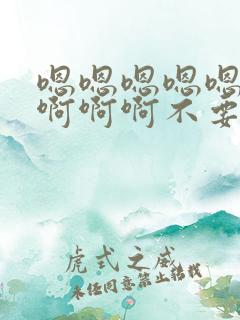 嗯嗯嗯嗯嗯
啊啊啊不要
虎式之威
未经同意禁止转载